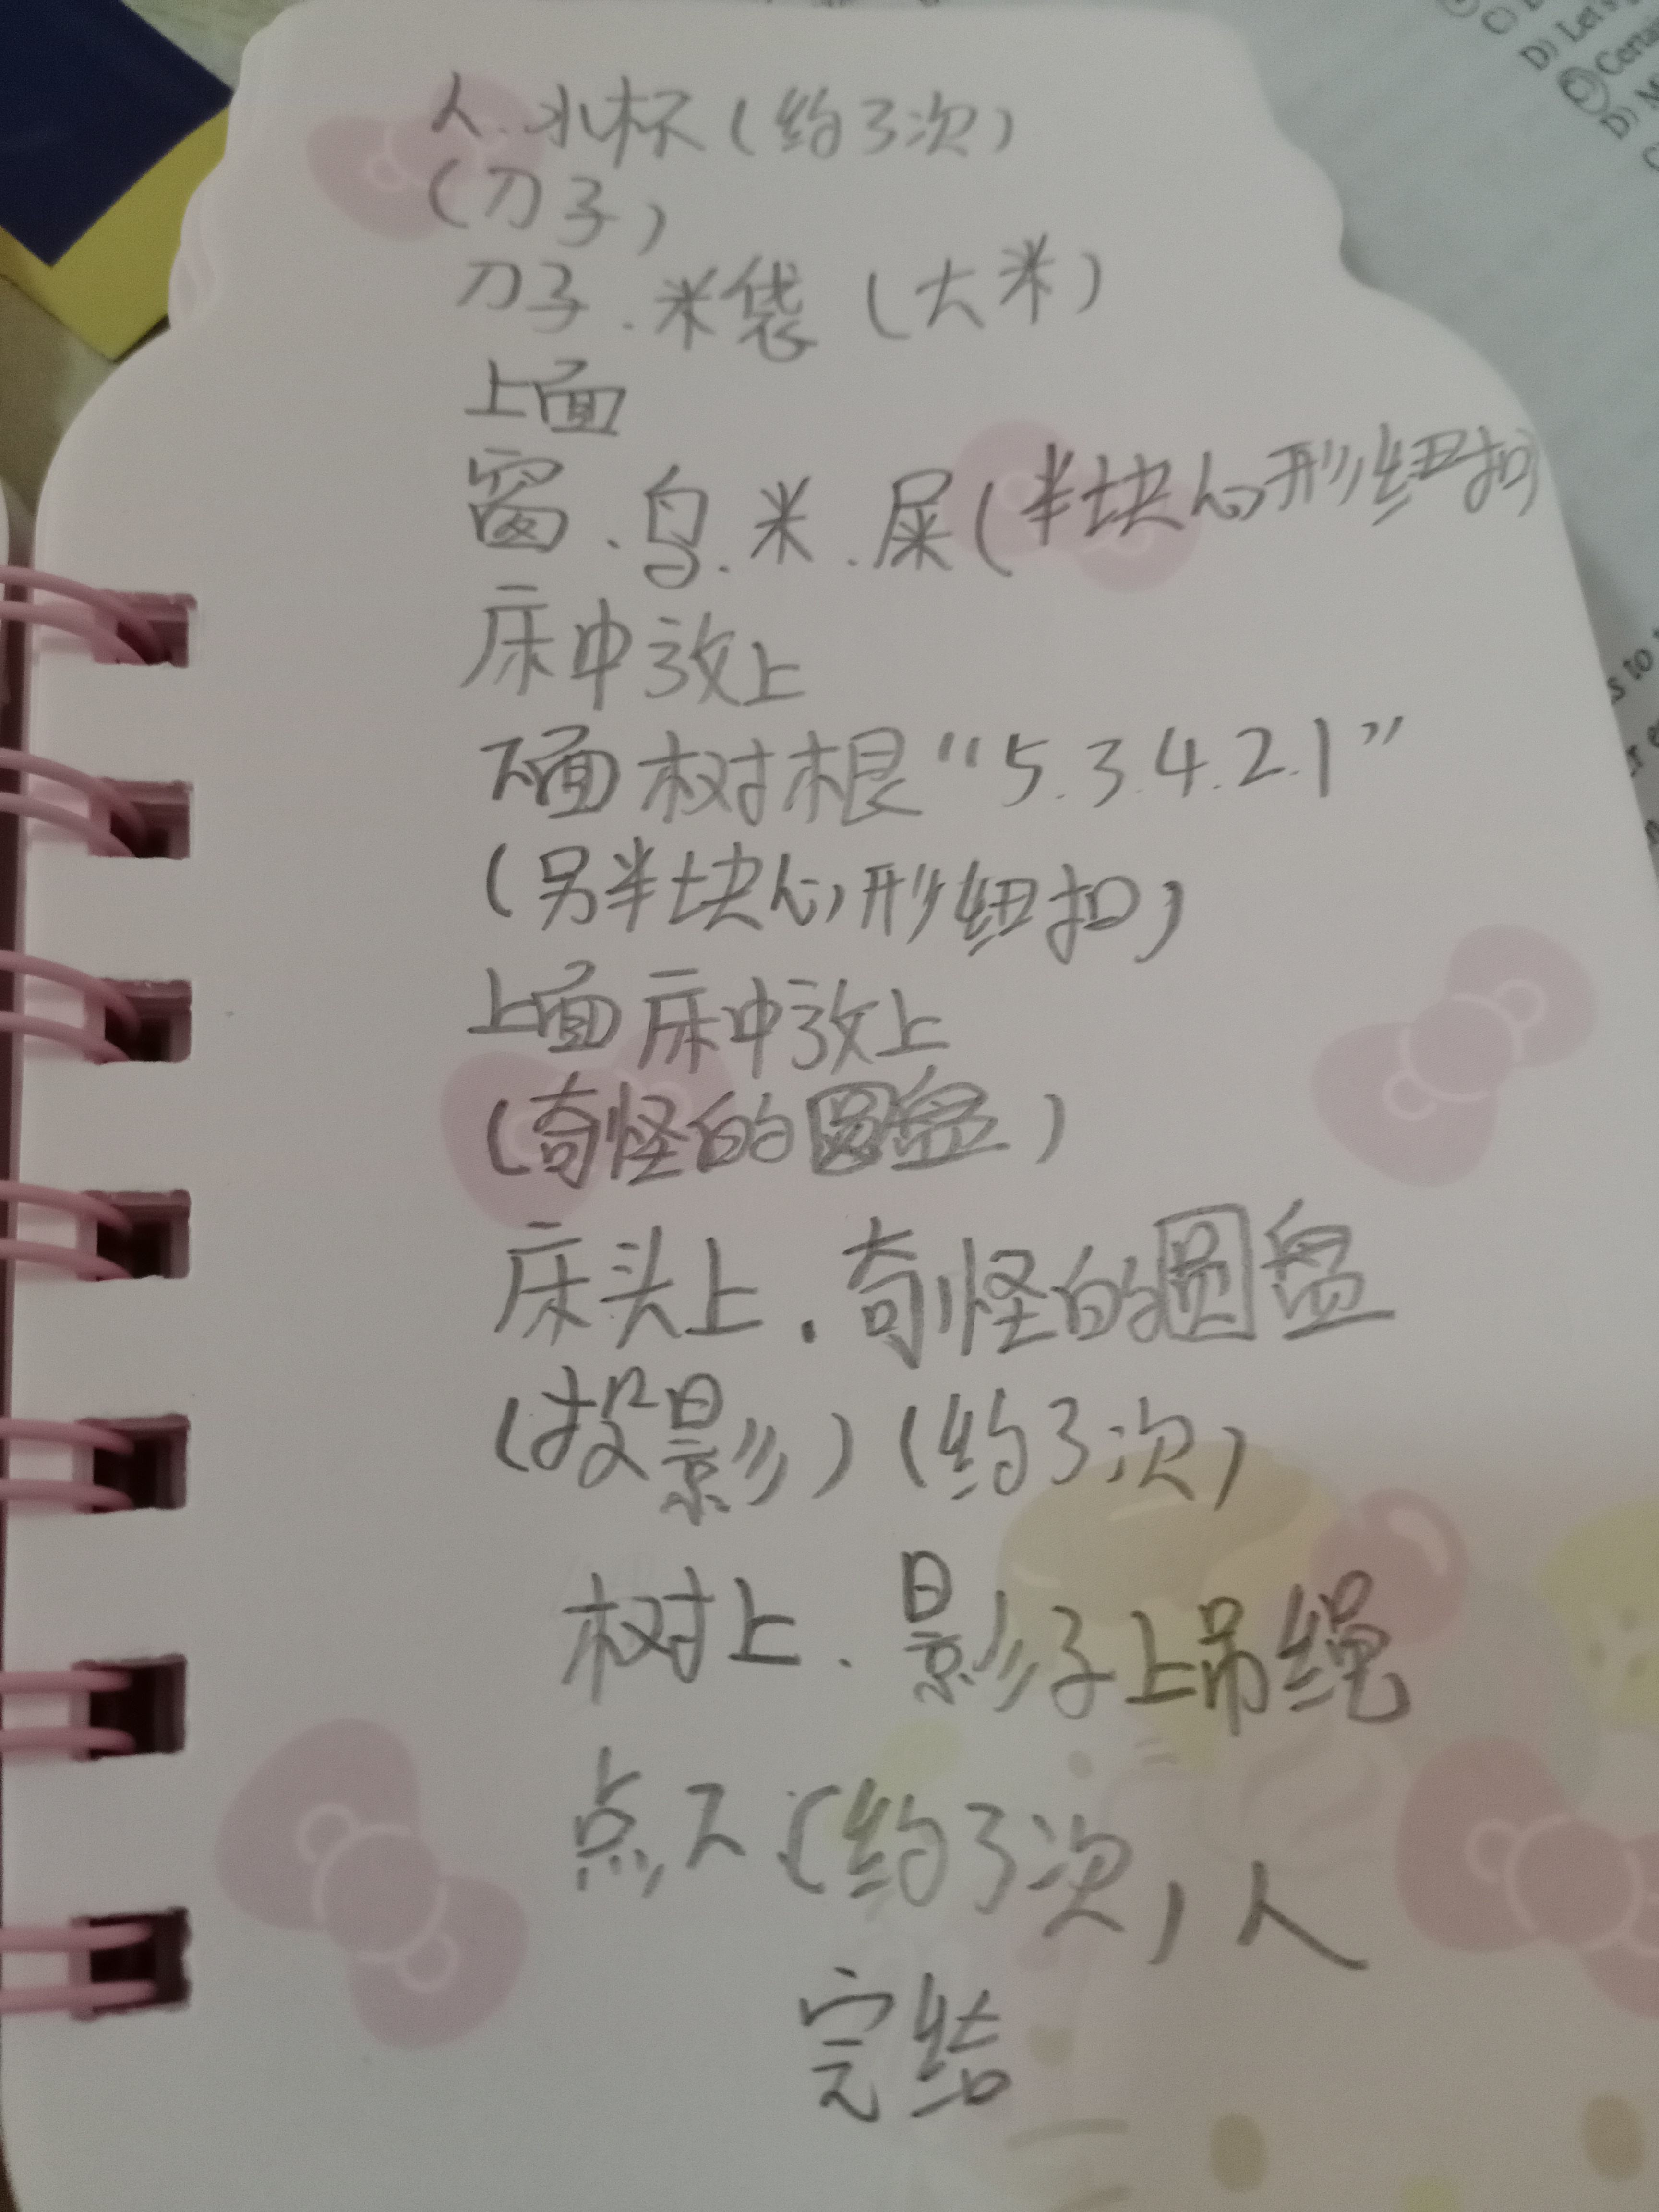 人.水杯(约3次)
(刀子)
刀子.米袋(大米)
上面
窗.鸟.米.屎(半块心形纽扣)
床中放上
下面树根“5.3.4.2.1”
(另半块心形纽扣)
上面床中放上
(奇怪的圆盘)
床头上.奇怪的圆盘
(投影)(约3次)
树上.影子上吊绳
点下(约3次)人
完结
D) Let's
Certa
D) M
s to